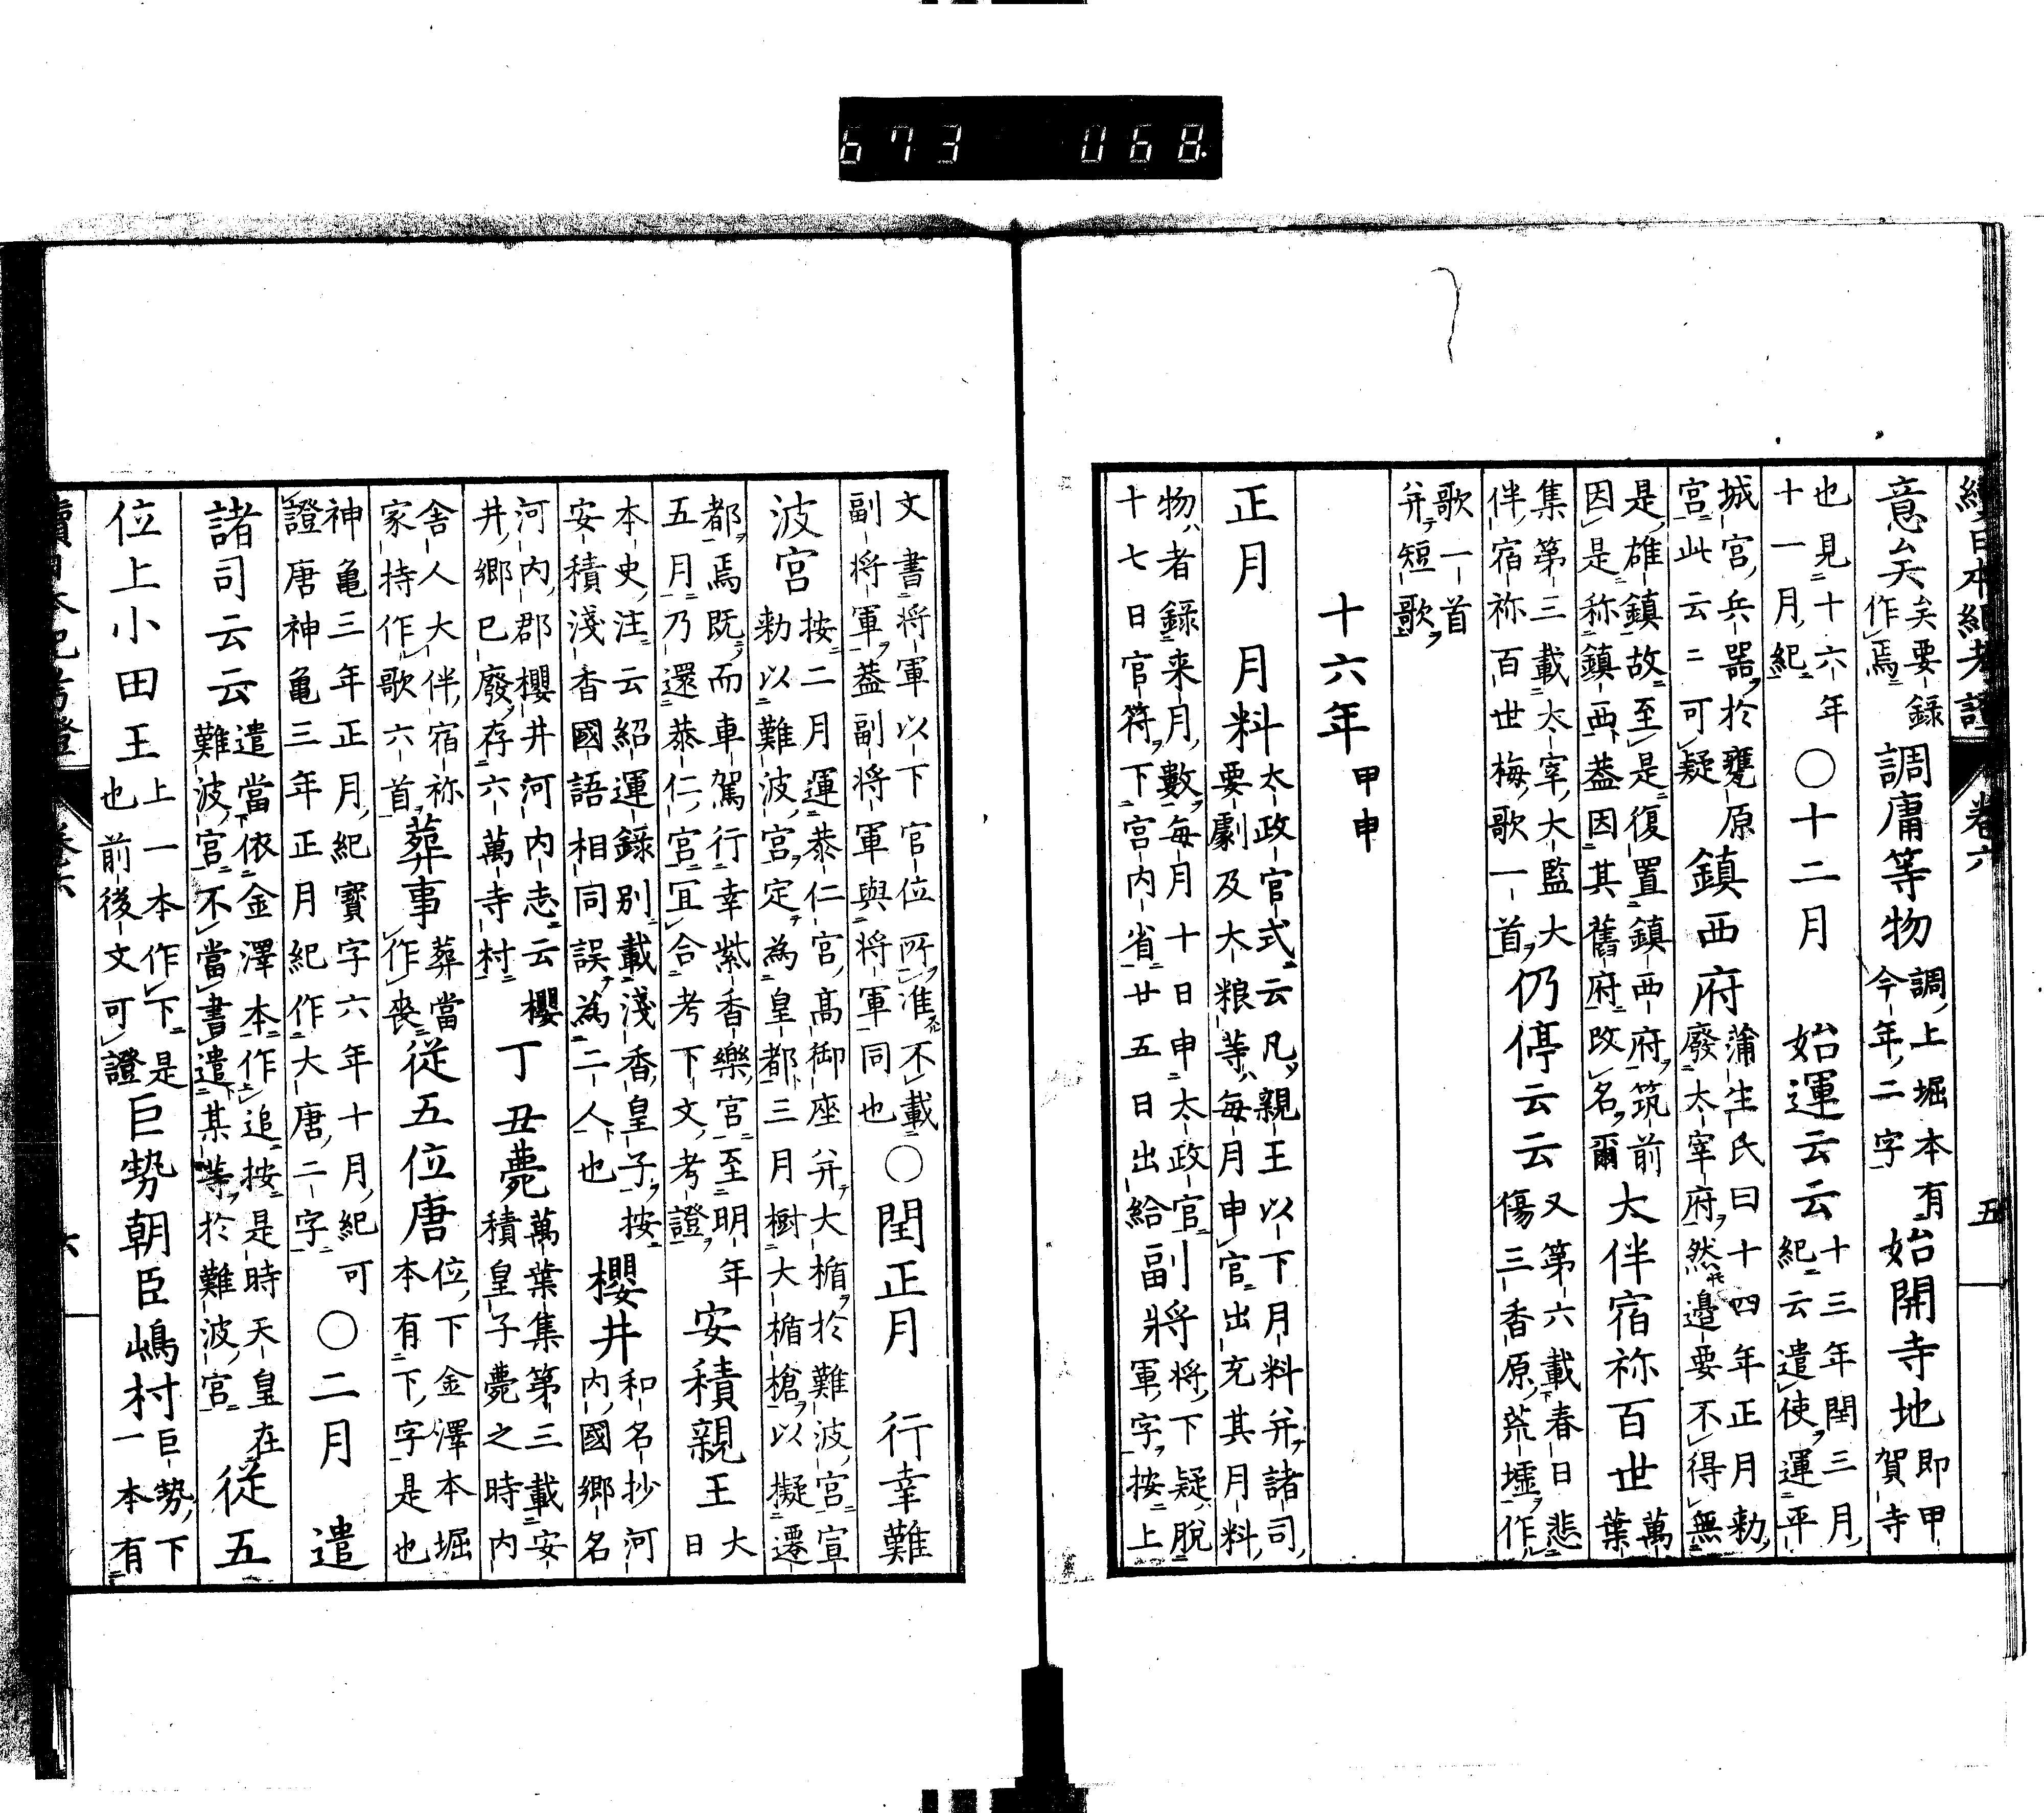 673 068
續日本紀考證 卷六 五
意矣矣要録作焉調庸等物調上堀本有今年二字始開寺地即甲賀寺
也見十六年十一月紀〇十二月 始運云云十三年閏三月紀云遣使運平
城宮兵器於甕原宮此云云可疑鎮西府蒲生氏曰十四年正月勅廢太宰府然邉要不得無
是雄鎮故至是復置鎮西府筑前因是称鎮西蓋因其舊府改名爾大伴宿祢百世萬葉
集第三載太宰大監大伴宿祢百世梅歌一首仍停云云又第六載春日悲傷三香原荒墟作
歌一首并短歌
十六年甲申
正月 月料太政官式云凡親王以下月料并諸司要劇及大粮等每月申官出充其月料
物者錄来月數每月十日申太政官十七日官符下宮内省廿五日出給副将軍将下疑脫軍字按上
文書将軍以下官位所准不載副将軍蓋副将軍與将軍同也〇閏正月 行幸難
波宮按二月運恭仁宮高御座并大楯於難波宮宣勅以難波宮定為皇都三月樹大楯槍以擬遷
都焉既而車駕行幸紫香樂宮至明年五月乃還恭仁宮宜合考下文考證安積親王大日
本史注云紹運録別載淺香皇子按安積淺香國語相同誤為二人也櫻井和名抄河内國郷名
河内郡櫻井河内志云櫻井郷已廢存六萬寺村丁丑薨萬葉集第三載安積皇子薨之時内
舎人大伴宿祢家持作歌六首葬事葬當作喪従五位唐位下金澤本堀本有下字是也
神亀三年正月紀寶字六年十月紀可證唐神亀三年正月紀作大唐二字〇二月 遣
諸司云云遣當依金澤本作追按是時天皇在難波宮不當書遣某等於難波宮従五
位上小田王上一本作下是也前後文可證巨勢朝臣嶋村巨勢下一本有
續日本紀考證 卷六 六